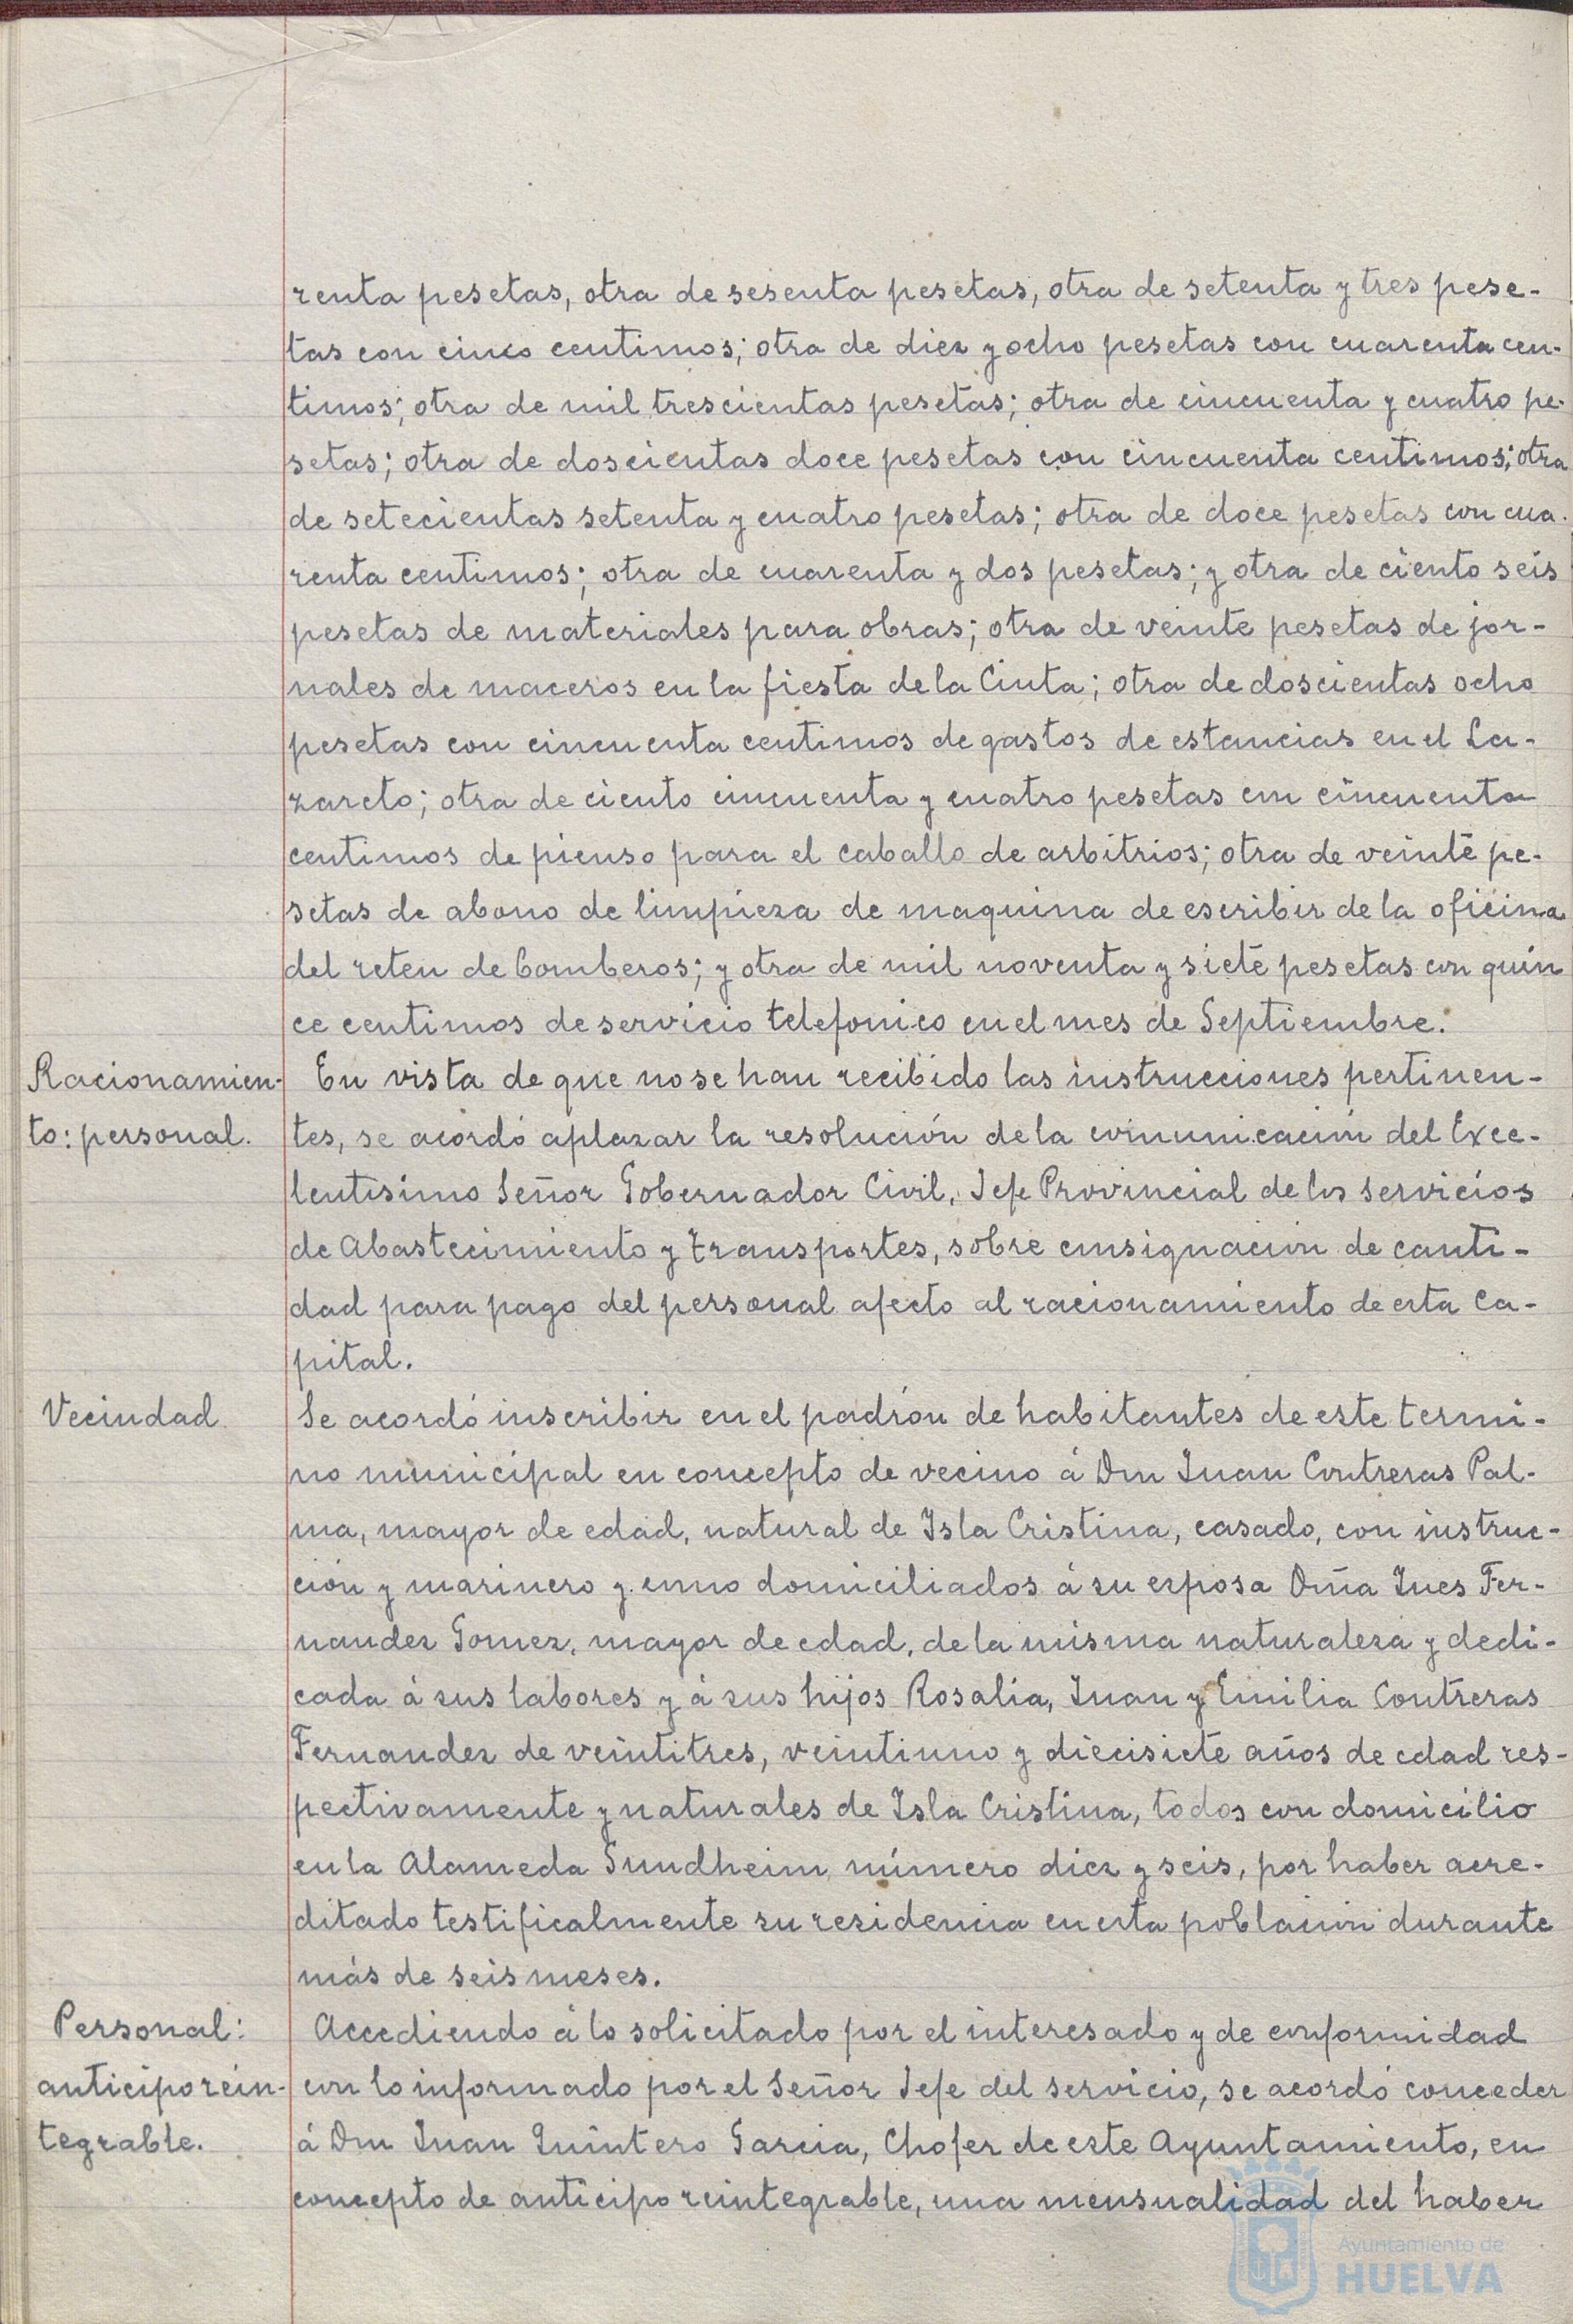 renta pesetas, otra de sesenta pesetas, otra de setenta y tres pese-
tas con cinco centimos; otra de diez y ocho pesetas con cuarenta cen-
timos; otra de mil trescientas pesetas; otra de cincuenta y cuatro pe-
setas; otra de doscientas doce pesetas con cincuenta centimos; otra
de setecientas setenta y cuatro pesetas; otra de doce pesetas con cua-
renta centimos; otra de cuarenta y dos pesetas; y otra de ciento seis
pesetas de materiales para obras; otra de veinte pesetas de jor-
nales de maceros en la fiesta de la Cinta; otra de doscientas ocho
pesetas con cincuenta centimos de gastos de estancias en el La-
zareto; otra de ciento cincuenta y cuatro pesetas con cincuenta
centimos de pienso para el caballo de arbitrios; otra de veinte pe-
setas de abono de limpieza de maquina de escribir de la oficina
del reten de bomberos; y otra de mil noventa y siete pesetas con quin
ce centimos de servicio telefonico en el mes de Septiembre.
Racionamien-
to: personal.
En vista de que no se han recibido las instrucciones pertinen-
tes, se acordó aplazar la resolución de la comunicación del Exce-
lentísimo Señor Gobernador Civil, Jefe Provincial de los servicios
de Abastecimiento y transportes, sobre consignación de canti-
dad para pago del personal afecto al racionamiento de esta Ca-
pital.
Vecindad
Se acordó inscribir en el padrón de habitantes de este termi-
no municipal en concepto de vecino á Don Juan Contreras Pal-
ma, mayor de edad, natural de Isla Cristina, casado, con instruc-
ción y marinero y como domiciliados á su esposa Doña Ines Fer-
nandez Gomez, mayor de edad, de la misma naturaleza y dedi-
cada á sus labores y á sus hijos Rosalía, Juan y Emilia Contreras
Fernandez de veintitres, veintiuno y diecisiete años de edad res-
pectivamente y naturales de Isla Cristina, todos con domicilio
en la Alameda Sundheim número diez y seis, por haber acre-
ditado testificalmente su residencia en esta población durante
más de seis meses.
Personal:
anticipo rein-
tegrable.
Accediendo á lo solicitado por el interesado y de conformidad
con lo informado por el Señor Jefe del servicio, se acordó conceder
á Don Juan Quintero Garcia, Chofer de este Ayuntamiento, en
concepto de anticipo reintegrable, una mensualidad del haber
Ayuntamiento de
HUELVA